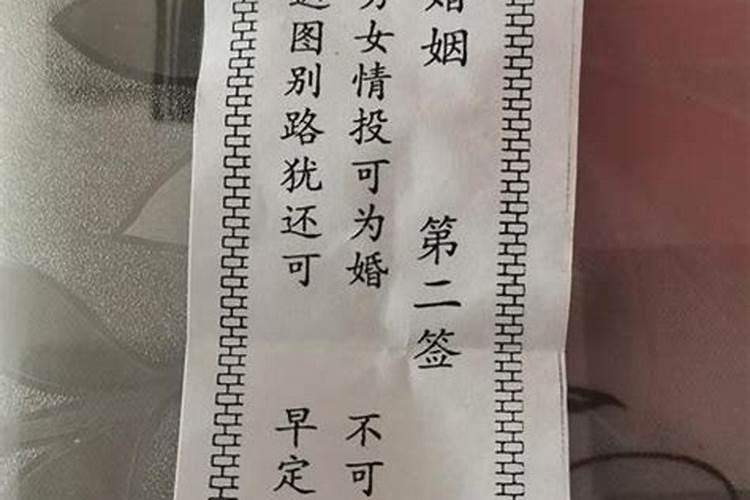 姻 第二签
女情投可为婚 不可
图别路犹还可 早定